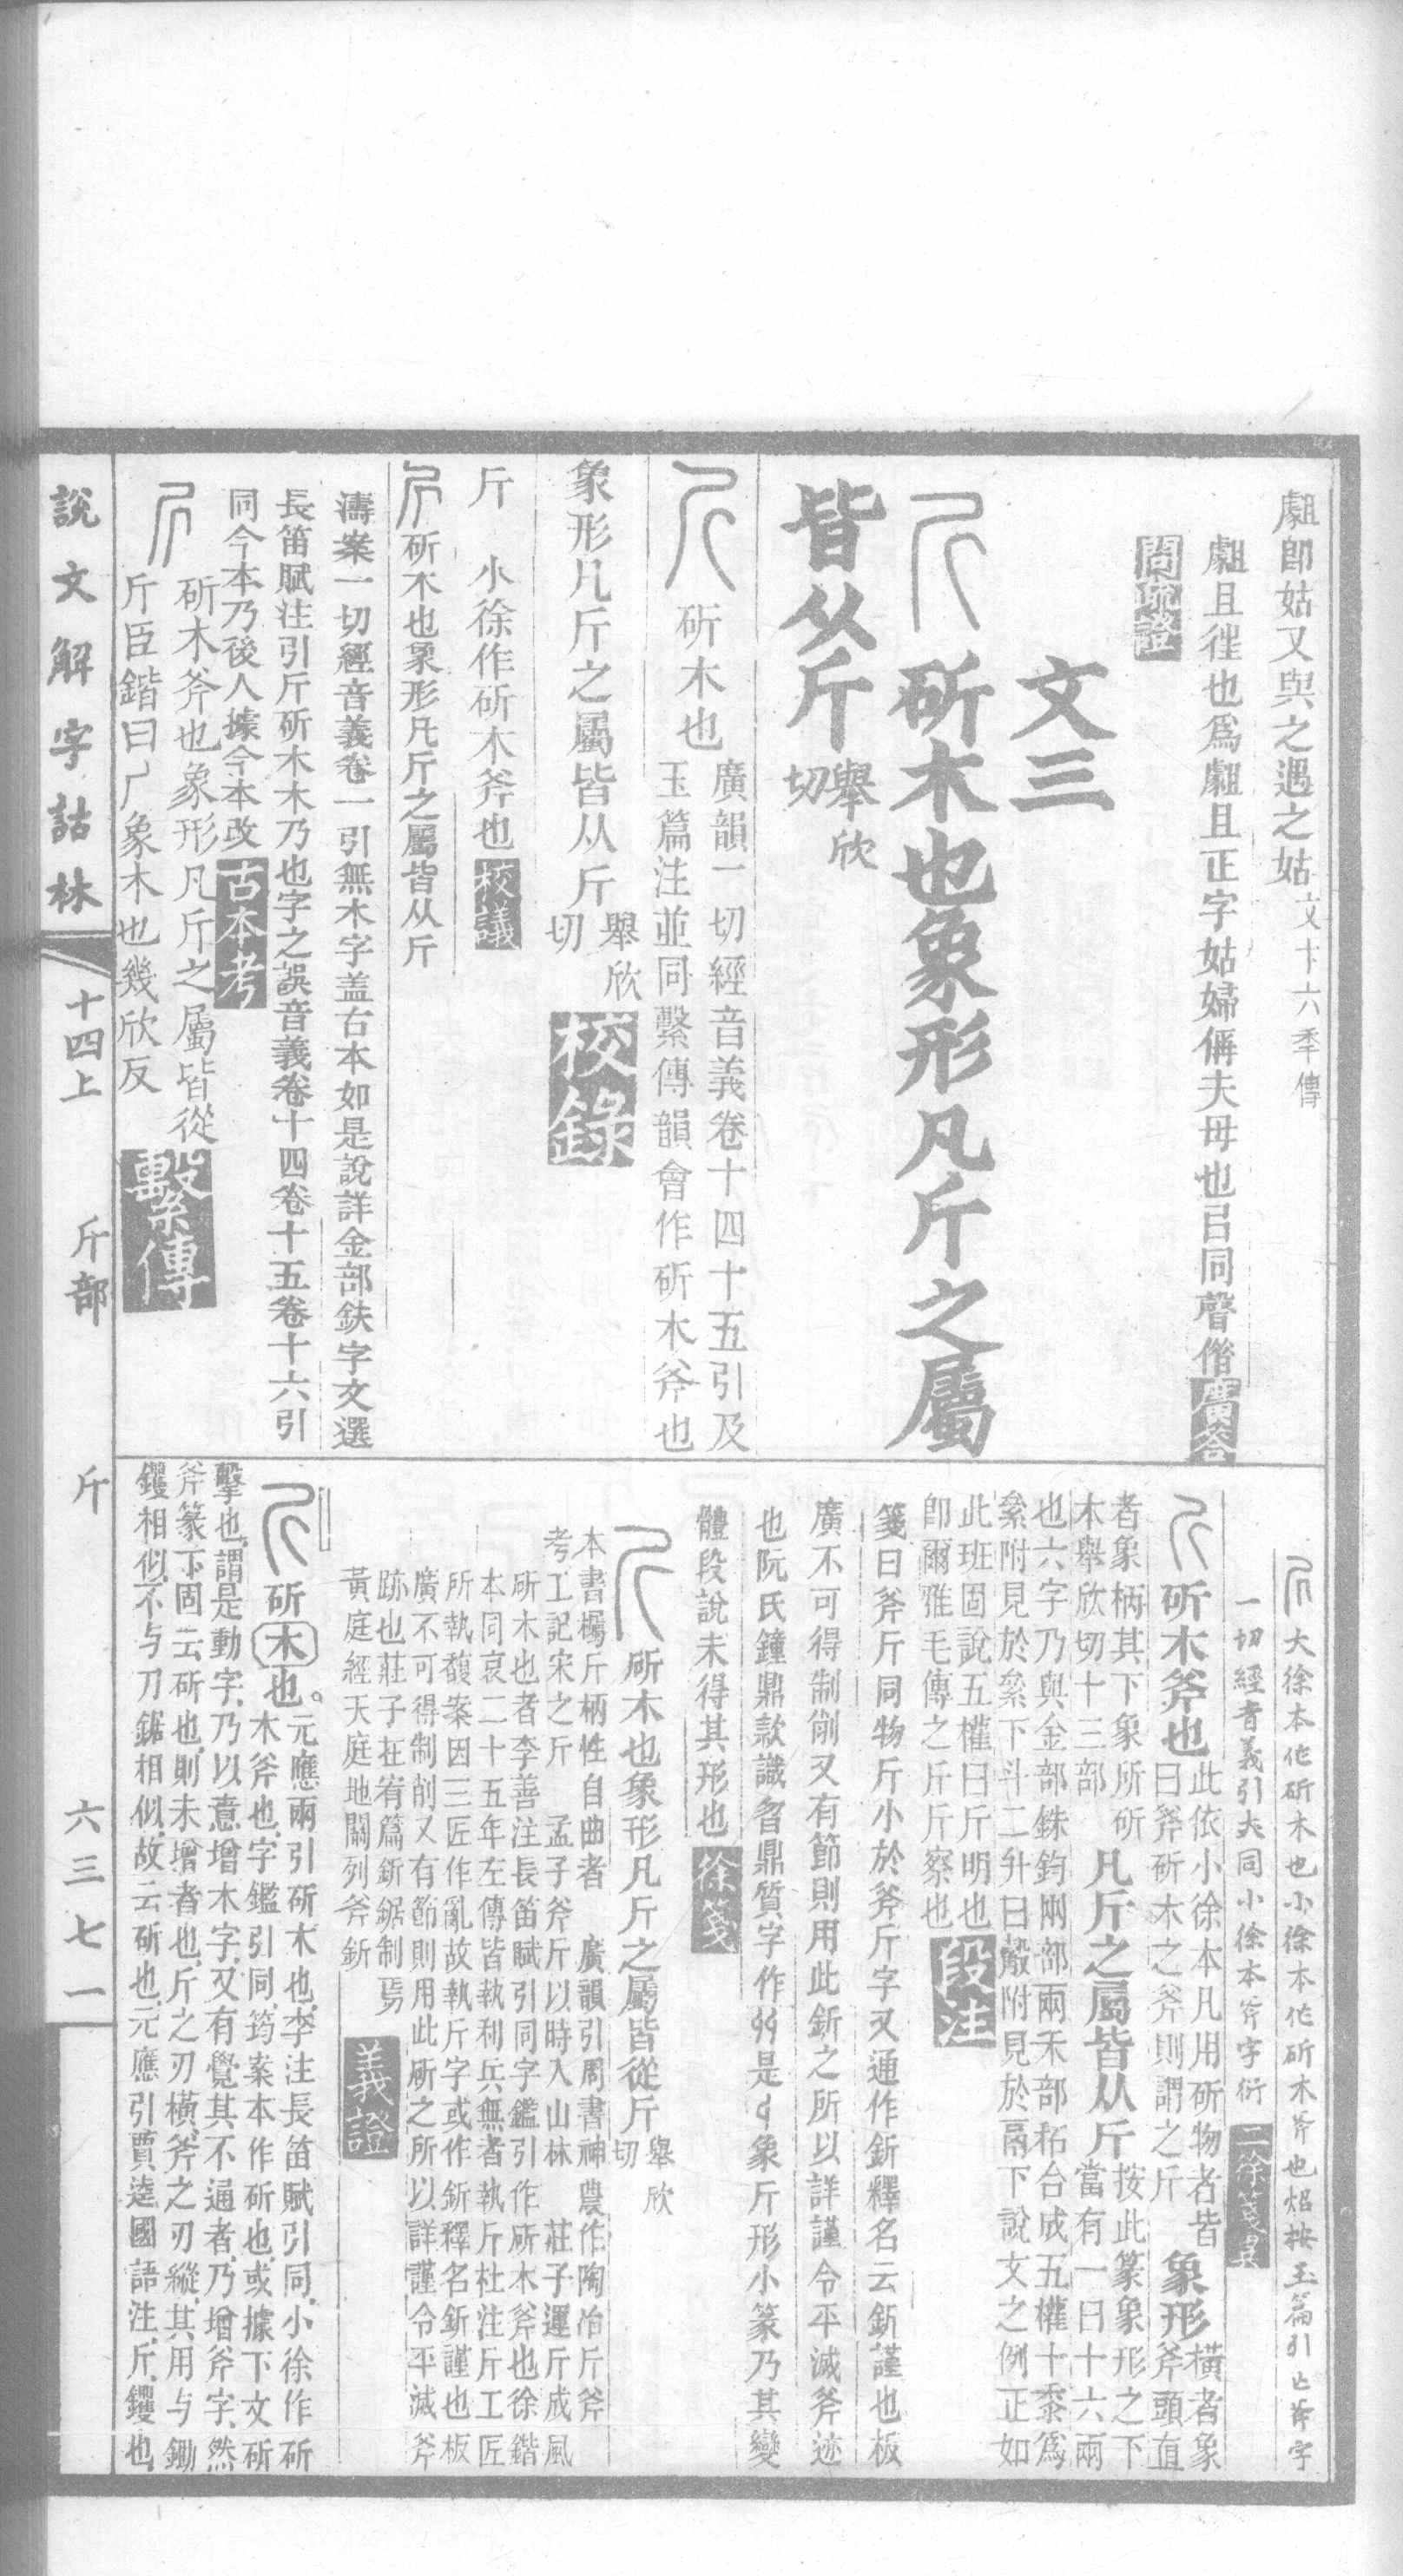 劇卽姑又與之遇之姑文十六年傳
劇且徃也爲劇且正字姑婦偁夫母也㠯同聲偕廣荅
問疏證
文三
斫木也象形凡斤之屬
皆从斤舉欣切
斫木也廣韻一切經音義卷十四十五引及
玉篇注並同繫傳韻會作斫木斧也
象形凡斤之屬皆从斤舉欣切校錄
斤 小徐作斫木斧也校議
斫木也象形凡斤之屬皆从斤
濤案一切經音義卷一引無木字蓋古本如是說詳金部鈇字文選
長笛賦注引斤斫木木乃也字之誤音義卷十四卷十五卷十六引
同今本乃後人據今本改古本考
斫木斧也象形凡斤之屬皆從
斤臣鍇曰厂象木也幾欣反繫傳
大徐本作斫木也小徐本作斫木斧也炤按玉篇引亡斧字
一切經音義引大同小徐本斧字衍二徐箋異
斫木斧也此依小徐本凡用斫物者皆
曰斧斫木之斧則謂之斤象形橫者象斧頭直
者象柄其下象所斫
木舉欣切十三部凡斤之屬皆从斤按此篆象形之下
當有一曰十六兩
也六字乃與金部銖鈞㒳部兩禾部䄷合成五權十黍爲
絫附見於絫下斗二升曰㲉附見於鬲下說文之例正如
此班固說五權曰斤明也
卽爾雅毛傳之斤斤察也段注
箋曰斧斤同物斤小於斧斤字又通作釿釋名云釿謹也板
廣不可得制削又有節則用此釿之所以詳謹令平滅斧迹
也阮氏鐘鼎款識曶鼎質字作是象斤形小篆乃其變
體段說未得其形也徐箋
斫木也象形凡斤之屬皆從斤舉欣切
本書欘斤柄性自曲者 廣韻引周書神農作陶冶斤斧
考工記宋之斤 孟子斧斤以時入山林 莊子運斤成風
斫木也者李善注長笛賦引同字鑑引作斫木斧也徐鍇
本同哀二十五年左傳皆執利兵無者執斤杜注斤工匠
所執馥案因三匠作亂故執斤字或作釿釋名釿謹也板
廣不可得制削又有節則用此斫之所以詳謹令平滅斧
跡也莊子在宥篇釿鋸制焉
黃庭經天庭地關列斧釿義證
斫木也。元應兩引斫木也，李注長笛賦引同，小徐作斫
木斧也，字鑑引同，筠案本作斫也，或據下文斫
擊也，謂是動字，乃以意增木字，又有覺其不通者，乃增斧字，然
斧篆下固云斫也，則未增者也，斤之刃橫，斧之刃縱，其用与鋤
钁相似，不与刀鋸相似，故云斫也，元應引賈逵國語注，斤，钁也，
說文解字詁林 十四上 斤部 斤 六三七一